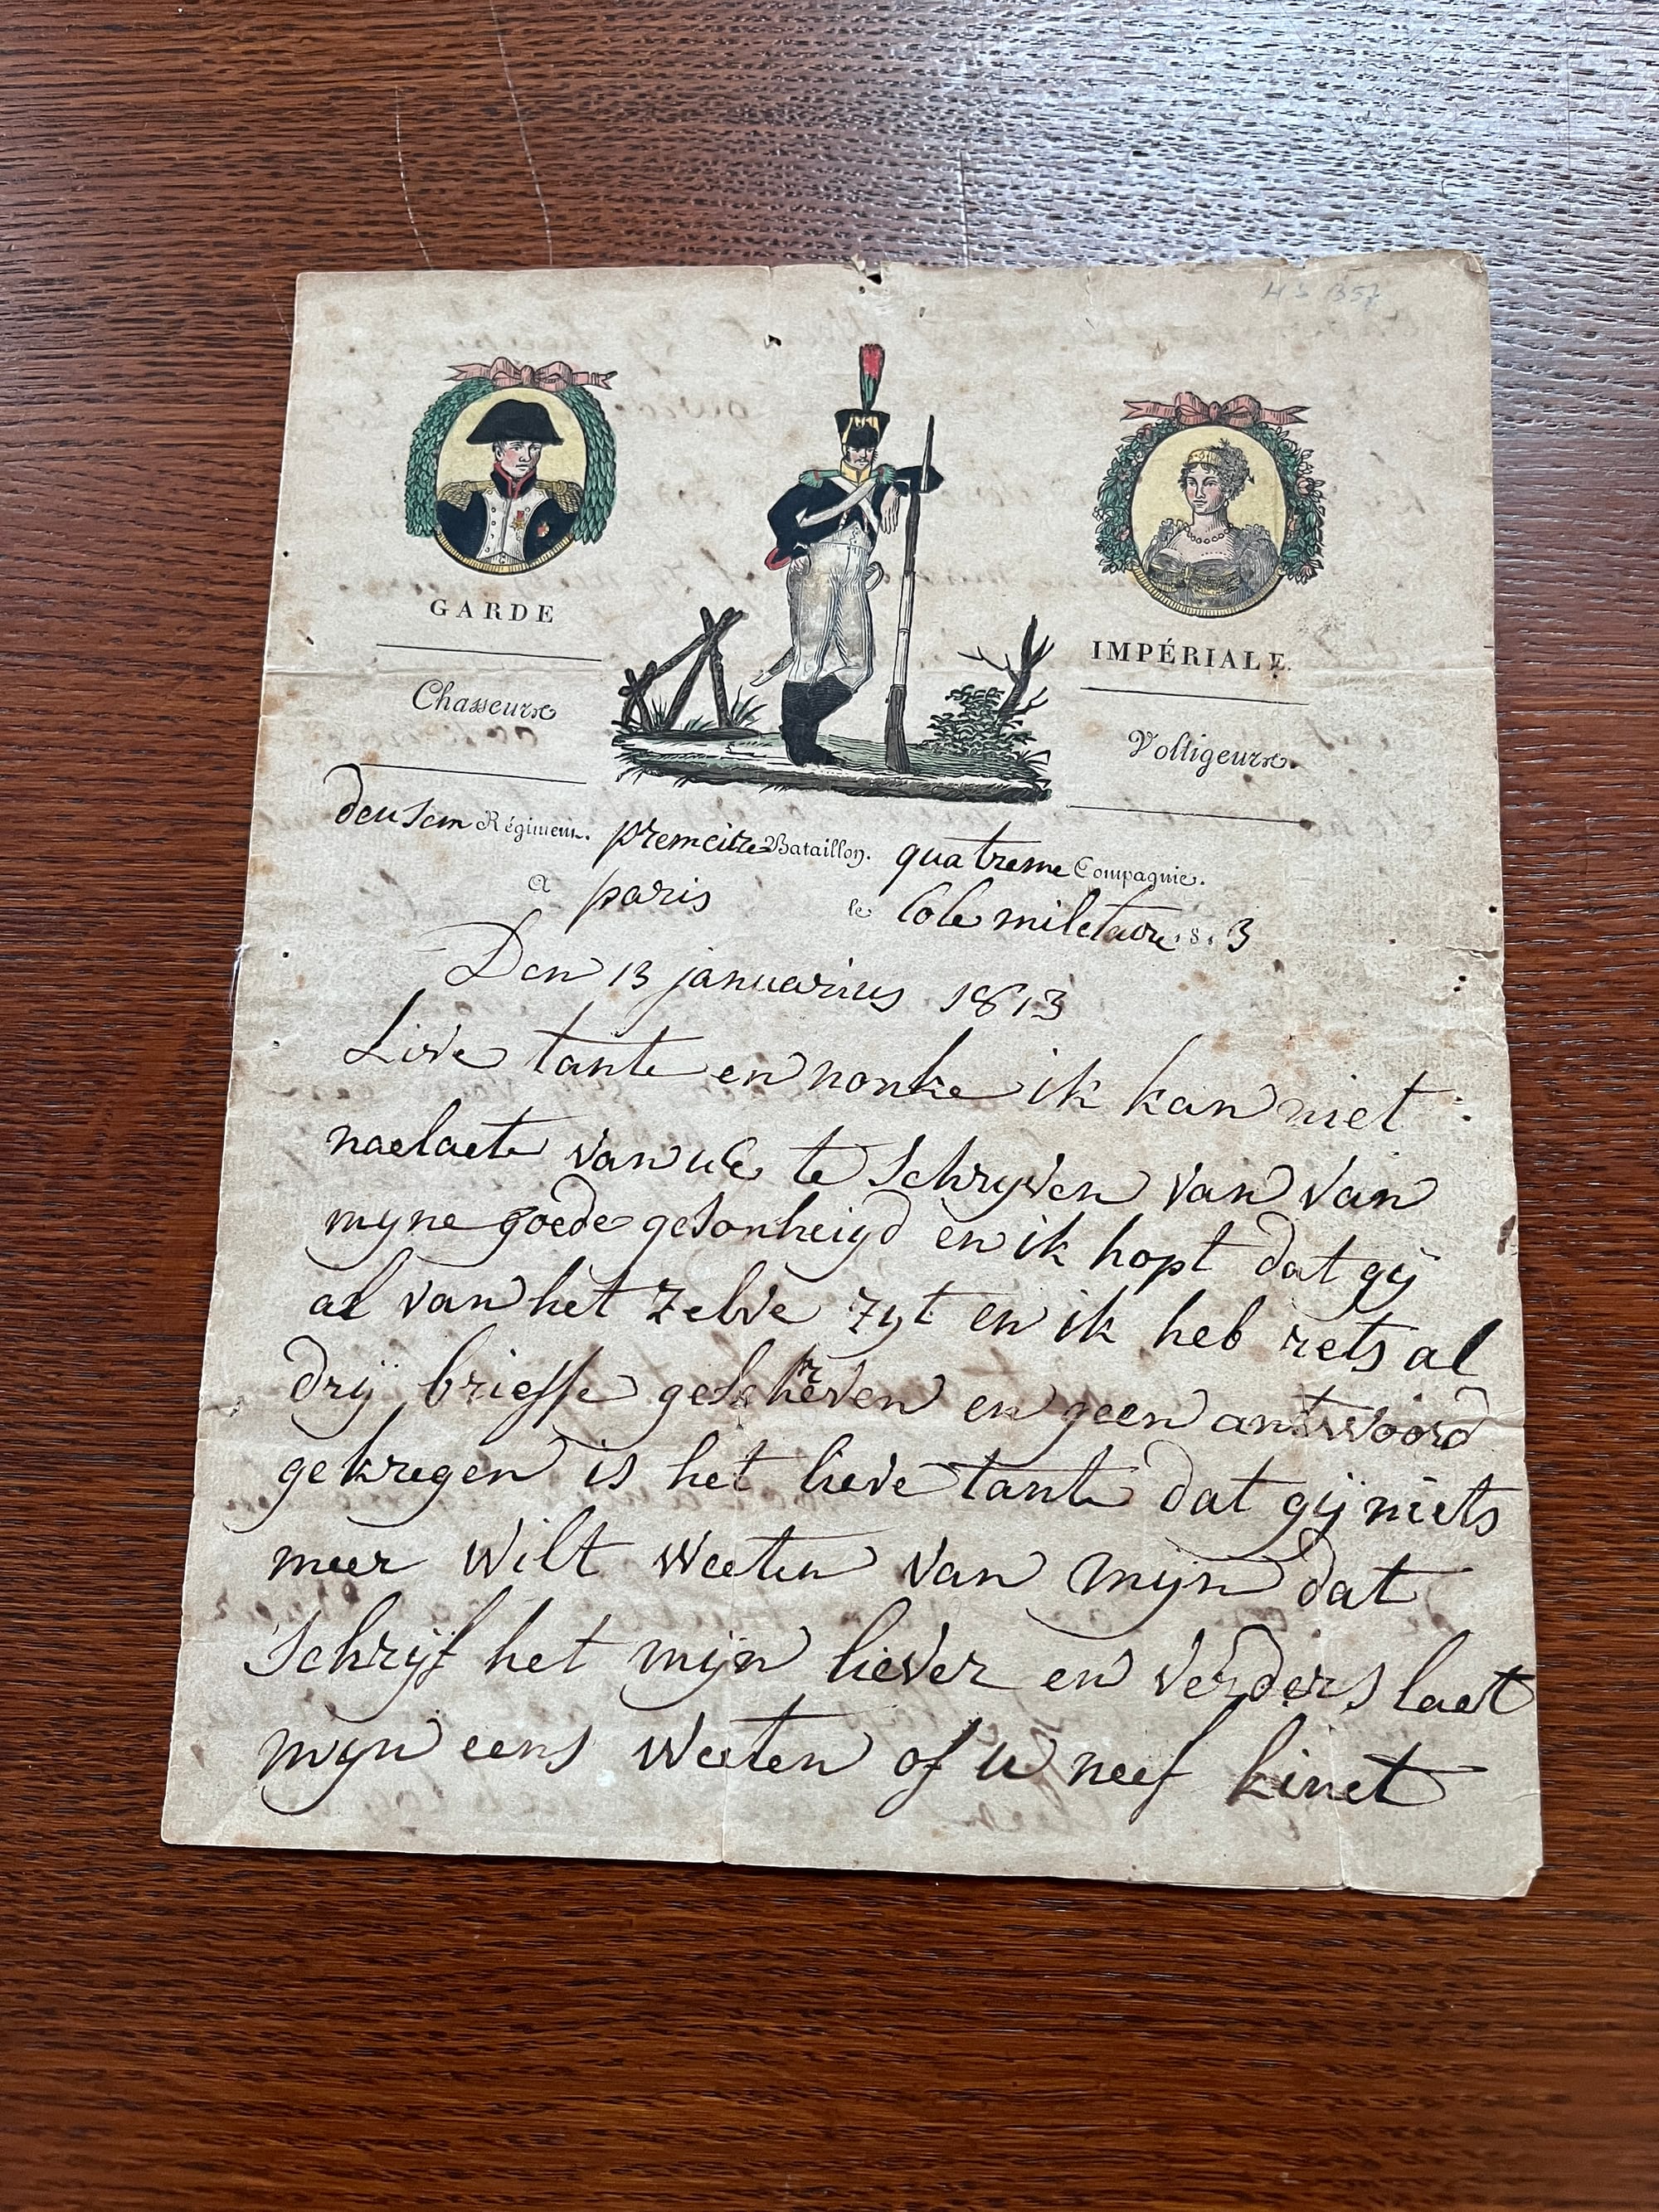 HS 357
GARDE
IMPÉRIALE.
Chasseurs
Voltigeurs.
deusem Régiment. premeire Bataillon. quatreme Compagnie.
A paris le Cole miletaire 1813
Den 13 januarius 1813
Live tante en nonke ik kan niet
naelaete van ul te schryven van van
myne goede gesonheiyd en ik hopt dat gij
al van het zelve zyt en ik heb rets al
drij brieffe geschreven en geen antwoord
gekregen is het lieve tante dat gij niets
meer wilt weeten van mijn dat
schrijf het mijn liever en verders laet
mijn eens weeten of u neef kinet